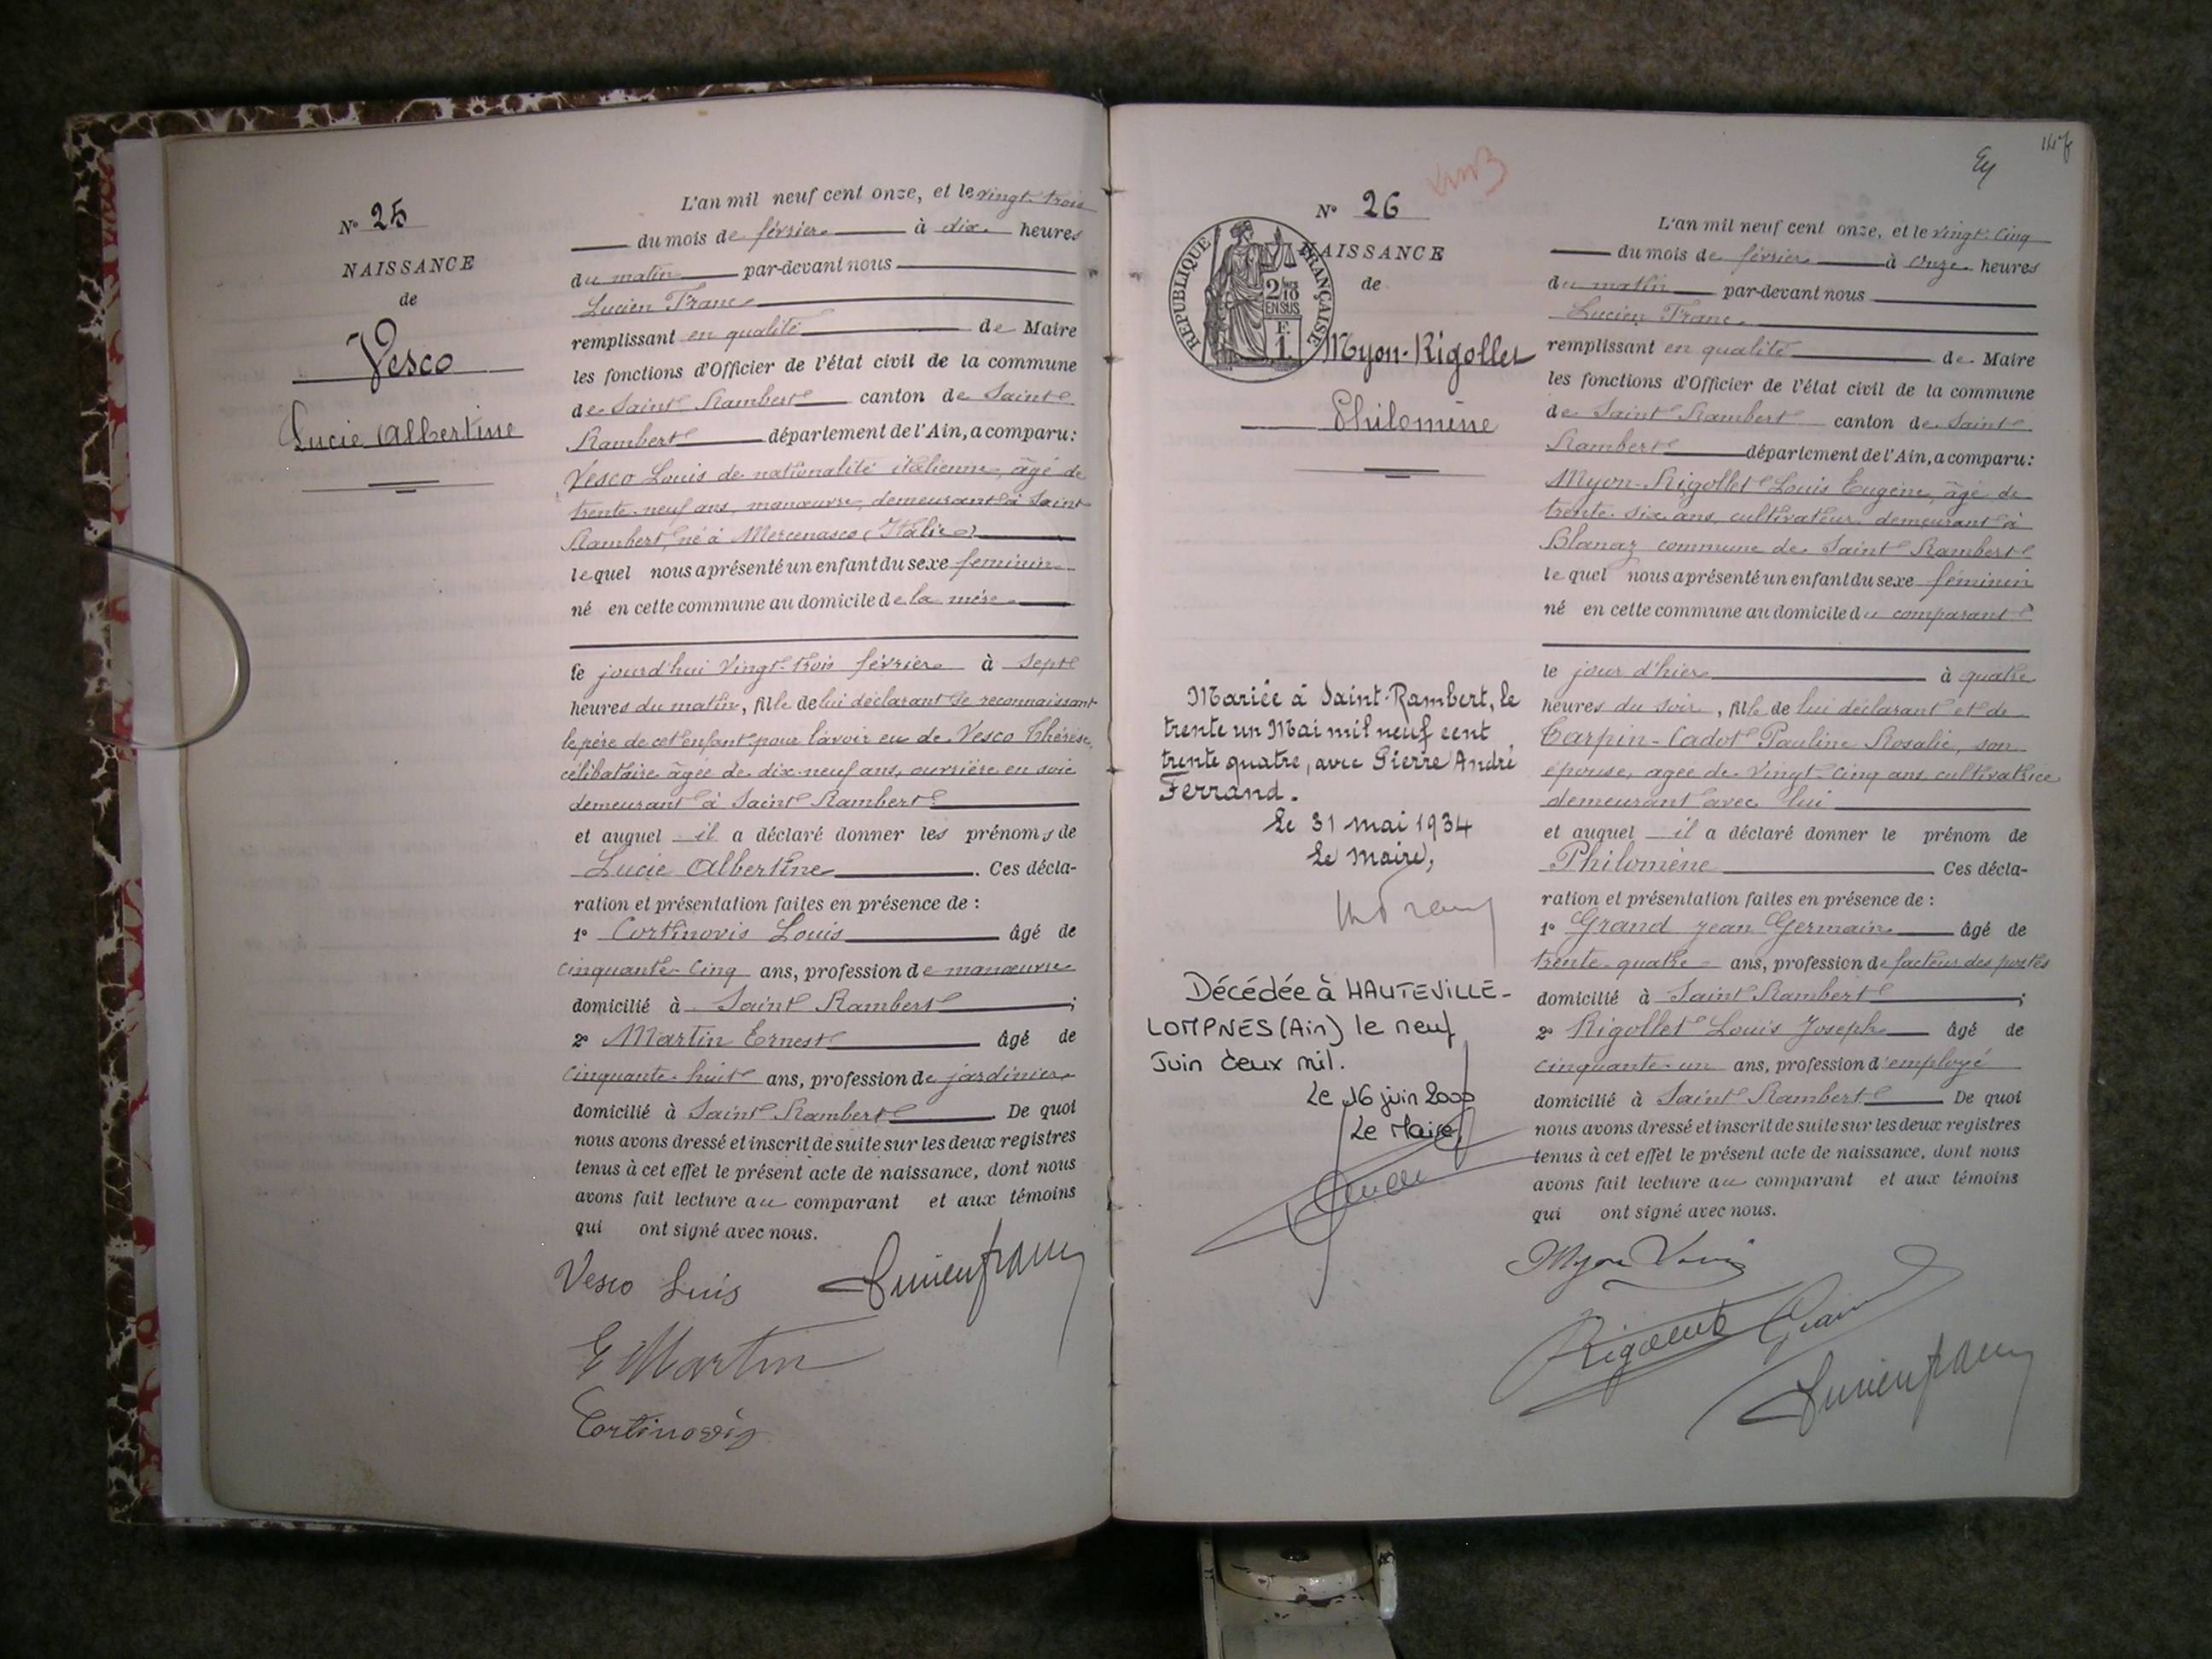 N° 25
NAISSANCE
de
Vesco
Lucie Albertine
L'an mil neuf cent onze, et le vingt-trois
du mois de février à dix heures
du matin par-devant nous
Lucien Franc
remplissant en qualité de Maire
les fonctions d'Officier de l'état civil de la commune
de Saint Rambert canton de Saint
Rambert département de l'Ain, a comparu:
Vesco Louis de nationalité italienne, âgé de
trente-neuf ans, manœuvre, demeurant à Saint
Rambert, né à Mercenasco (Italie)
lequel nous a présenté un enfant du sexe féminin
né en cette commune au domicile de la mère
le jourd'hui vingt-trois février à sept
heures du matin, fille de lui déclarant se reconnaissant
le père de cet enfant pour l'avoir eu de Vesco Thérèse,
célibataire âgée de dix-neuf ans, ouvrière en soie
demeurant à Saint Rambert
et auquel il a déclaré donner les prénoms de
Lucie Albertine. Ces décla-
ration et présentation faites en présence de :
1° Cortinovis Louis âgé de
cinquante-cinq ans, profession de manœuvre
domicilié à Saint Rambert ;
2° Martin Ernest âgé de
cinquante-huit ans, profession de jardinier
domicilié à Saint Rambert. De quoi
nous avons dressé et inscrit de suite sur les deux registres
tenus à cet effet le présent acte de naissance, dont nous
avons fait lecture au comparant et aux témoins
qui ont signé avec nous.
Vesco Luis Lucien franc
E Martin
Cortinovis
147
N° 26
NAISSANCE
de
RÉPUBLIQUE FRANÇAISE
2/10
EN SUS
F.
1
Myon-Rigollet
Philomène
Mariée à Saint-Rambert, le
trente un Mai mil neuf cent
trente quatre, avec Pierre André
Ferrand.
Le 31 mai 1934
Le Maire,
Décédée à HAUTEVILLE-
LOMPNES (Ain) le neuf
Juin deux mil.
Le 16 juin 2000
Le Maire,
L'an mil neuf cent onze, et le vingt-cinq
du mois de février à onze heures
du matin par-devant nous
Lucien Franc
remplissant en qualité de Maire
les fonctions d'Officier de l'état civil de la commune
de Saint Rambert canton de Saint
Rambert département de l'Ain, a comparu:
Myon-Rigollet Louis Eugène, âgé de
trente-six ans, cultivateur demeurant à
Blanaz commune de Saint Rambert
lequel nous a présenté un enfant du sexe féminin
né en cette commune au domicile du comparant
le jour d'hier à quatre
heures du soir, fille de lui déclarant et de
Tarpin-Cadot Pauline Rosalie, son
épouse, agée de vingt-cinq ans cultivatrice
demeurant avec lui
et auquel il a déclaré donner le prénom de
Philomène Ces décla-
ration et présentation faites en présence de :
1° Grand Jean Germain âgé de
trente-quatre ans, profession de facteur des postes
domicilié à Saint Rambert ;
2° Rigollet Louis Joseph âgé de
cinquante-un ans, profession d'employé
domicilié à Saint Rambert. De quoi
nous avons dressé et inscrit de suite sur les deux registres
tenus à cet effet le présent acte de naissance, dont nous
avons fait lecture au comparant et aux témoins
qui ont signé avec nous.
Myon Louis
Rigollet Grand
Lucien franc